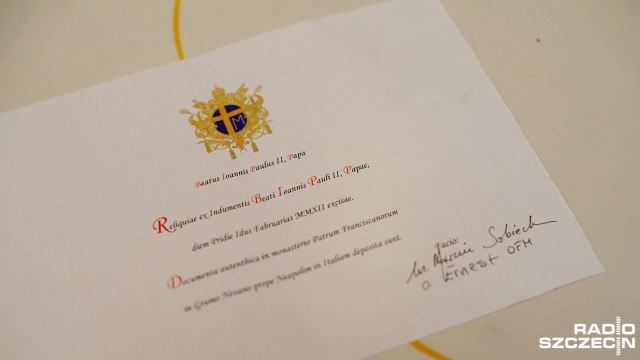 M
Beatus Ioannis Paulus II, Papa
Reliquiae ex Indumentis Beati Ioannis Pauli II, Papae,
diem Pridie Idus Fabruarias MMXII excisae.
Documenta autenthica in monasterio Patrum Franciscanorum
in Grumo Nevano prope Neapolim in Italiam deposita sunt.
Facio:
Marcin Sobiech
o. Ernest OFM
RADIO
SZCZECIN